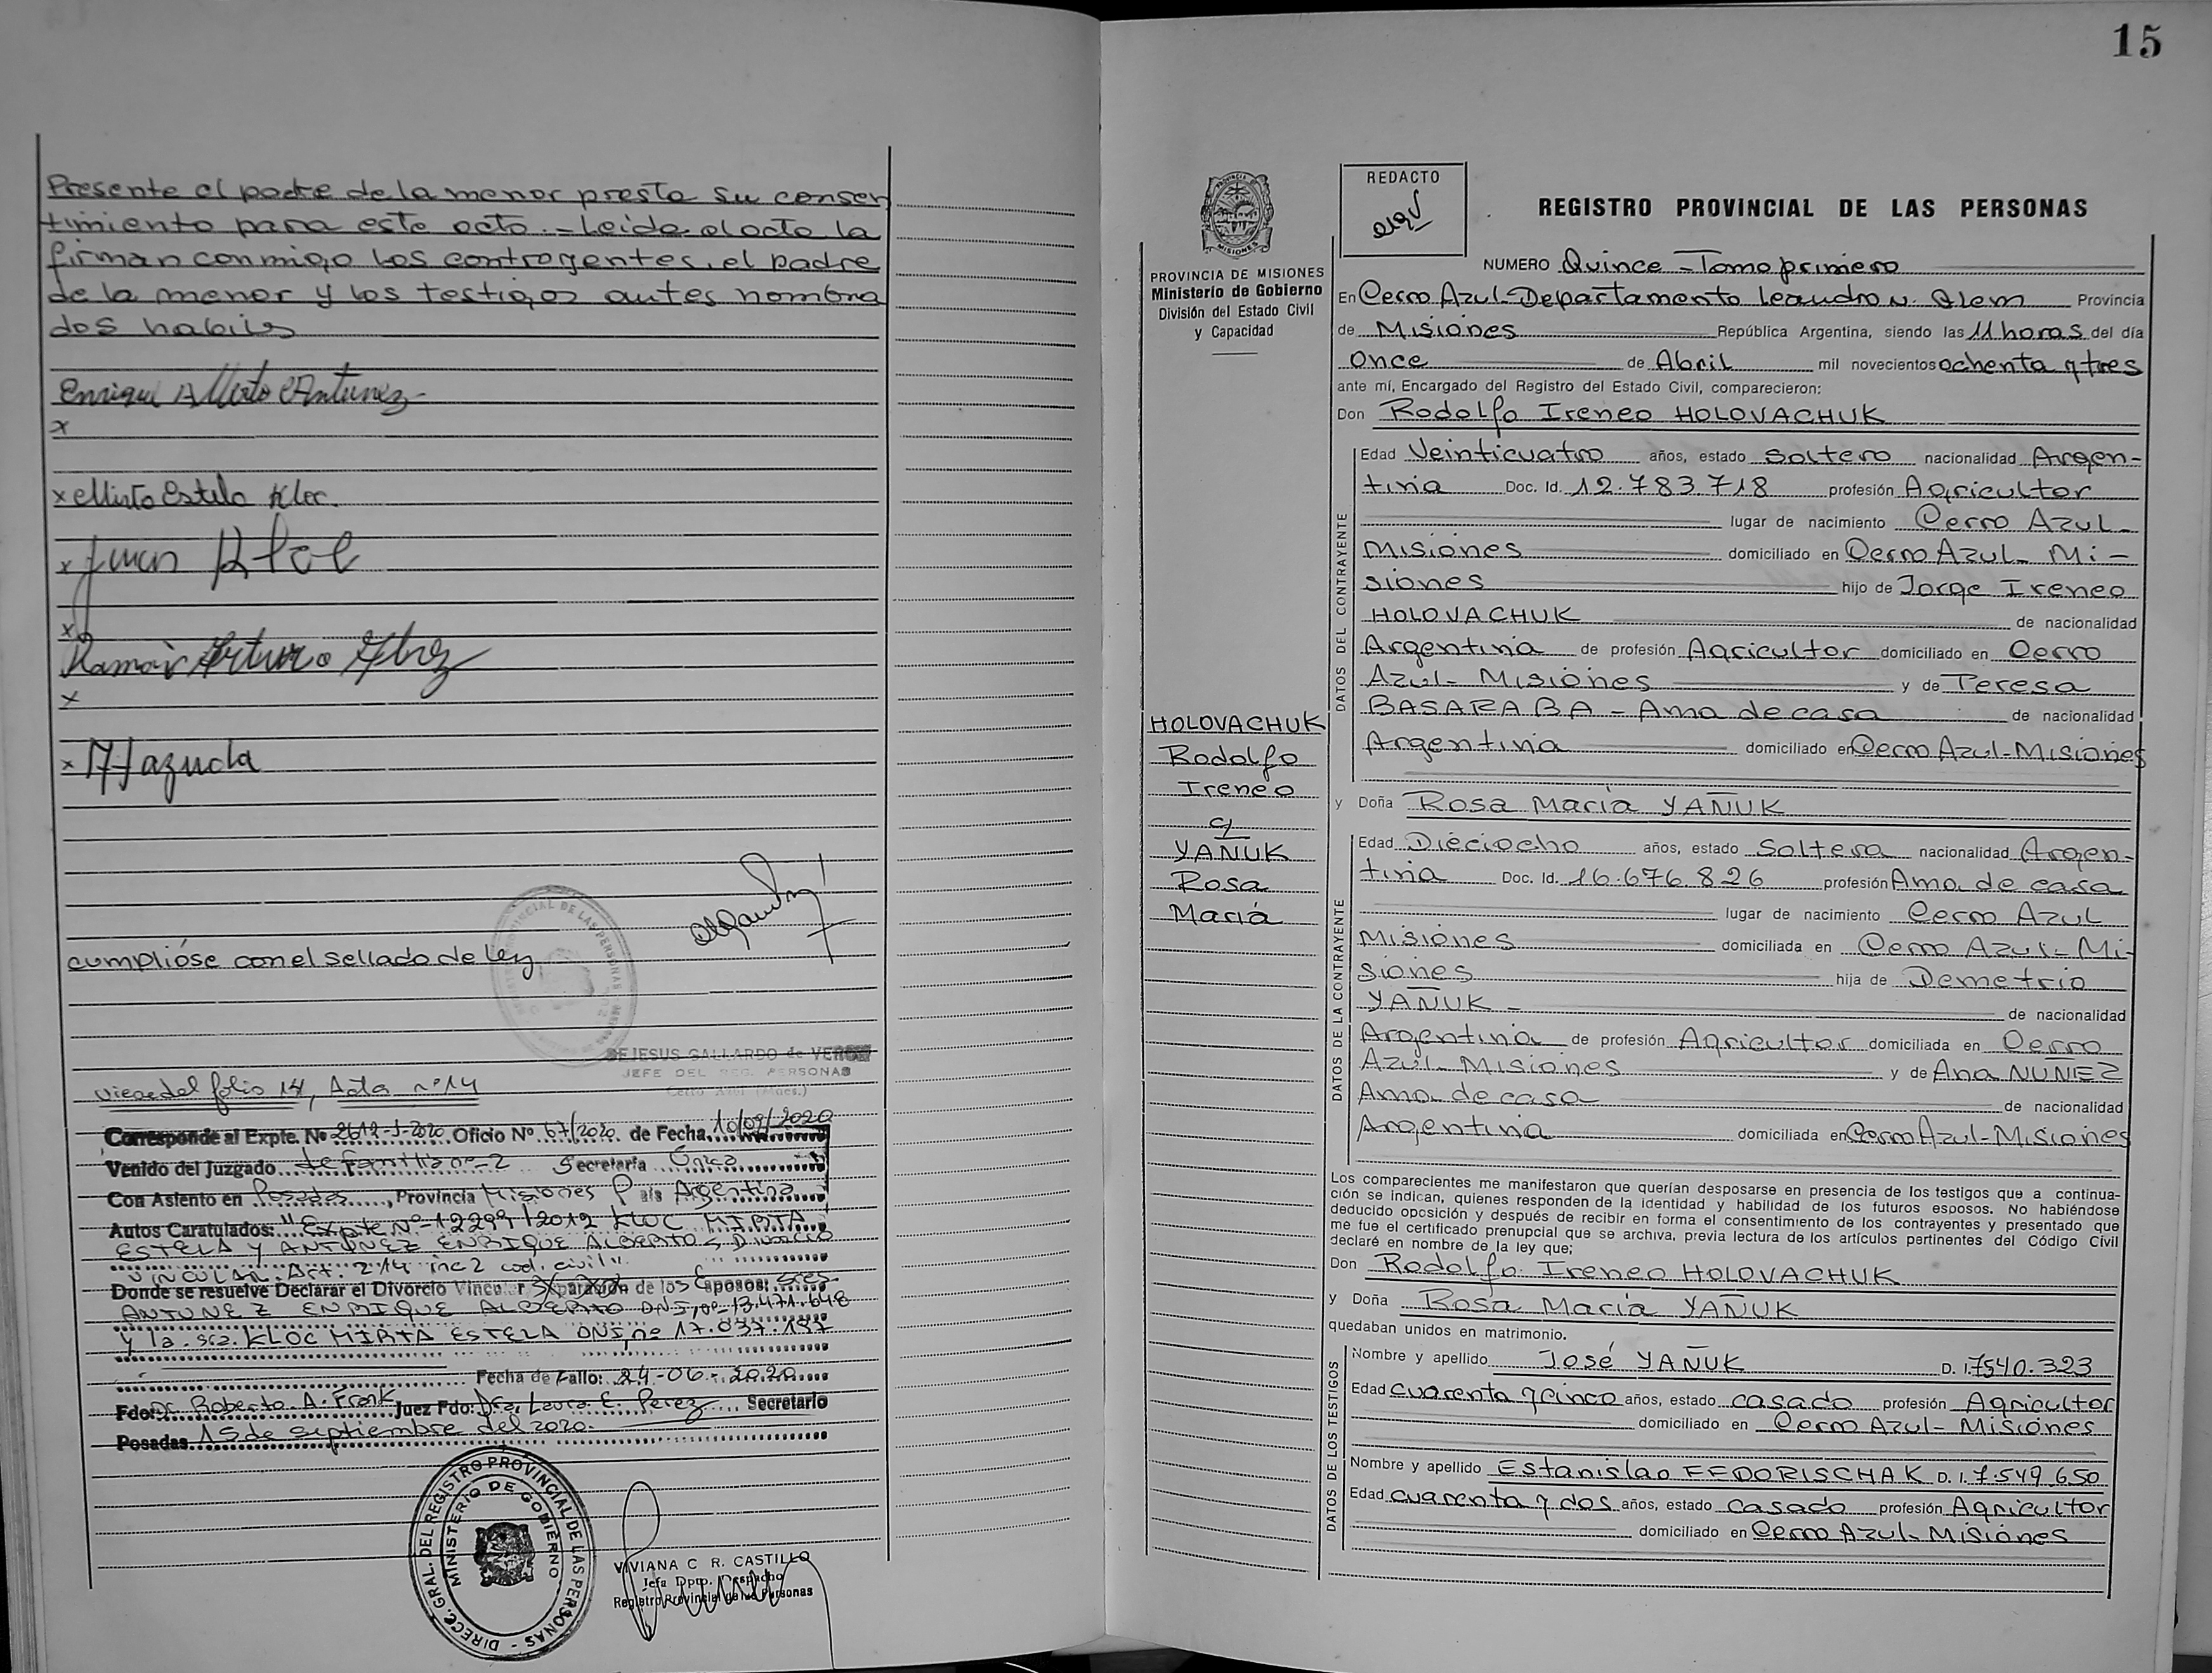 Presente el padre de la menor presta su consen
timiento para este acto.- Leida el acta la
firman conmigo los contrayentes, el padre
de la menor y los testigos antes nombra
dos habiles
Enrique Alberto Antunez
x
x Mirta Estela Kloc.
x Juan Kloc
x
Ramon Arturo
x
x
cumplióse con el sellado de ley
DEJESUS GALLARDO de VERON
JEFE DEL REG. PERSONAS
Cerro Azul (Mnes.)
viene del folio 14, Acta nº 14
Corresponde al Expte. Nº 2612-J-2020 Oficio Nº 67/2020. de Fecha 10/09/2020
Venido del Juzgado de Familia nº-2 Secretaría Única
Con Asiento en Posadas, Provincia Misiones País Argentina
Autos Caratulados: "Expte Nº-12299/2012 KLOC MIRTA
ESTELA Y ANTUNEZ ENRIQUE ALBERTO S/ Divorcio
VINCULAR. Art. 214 inc 2 cod. civil".
Donde se resuelve Declarar el Divorcio Vincular Separación de los Esposos: sres.
ANTUNEZ ENRIQUE ALBERTO DNI, nº 13.471.648
y la sra. KLOC MIRTA ESTELA DNI, nº 17.037.197
Fecha de Fallo: 24-06-2020
Fdo: Dr. Roberto A. Frank Juez Fdo: Dra. Laura E. Perez Secretario
Posadas 15 de septiembre del 2020.
DIRECC. GRAL. DEL REGISTRO PROVINCIAL DE LAS PERSONAS -
MINISTERIO DE GOBIERNO
VIVIANA C R. CASTILLO
Jefa Dpto. Despacho
Registro Provincial de las Personas
15
PROVINCIA DE MISIONES
Ministerio de Gobierno
División del Estado Civil
y Capacidad
HOLOVACHUK
Rodolfo
Ireneo
c/
YAÑUK
Rosa
María
REDACTO
REGISTRO PROVINCIAL DE LAS PERSONAS
NUMERO Quince - Tomo primero
En Cerro Azul-Departamento Leandro N. Alem Provincia
de Misiones República Argentina, siendo las 11 horas del día
once de Abril mil novecientos ochenta y tres
ante mí, Encargado del Registro del Estado Civil, comparecieron:
Don Rodolfo Ireneo HOLOVACHUK
DATOS DEL CONTRAYENTE
Edad Veinticuatro años, estado soltero nacionalidad Argen-
tina Doc. Id. 12.783.718 profesión Agricultor
lugar de nacimiento Cerro Azul-
Misiones domiciliado en Cerro Azul- Mi-
siones hijo de Jorge Ireneo
HOLOVACHUK de nacionalidad
Argentina de profesión Agricultor domiciliado en Cerro
Azul- Misiones y de Teresa
BASARABA - Ama de casa de nacionalidad
Argentina domiciliado en Cerro Azul-Misiones
y Doña Rosa María YAÑUK
DATOS DE LA CONTRAYENTE
Edad Dieciocho años, estado Soltera nacionalidad Argen-
tina Doc. Id. 16.676.826 profesión Ama de casa
lugar de nacimiento Cerro Azul
Misiones domiciliada en Cerro Azul- Mi-
siones hija de Demetrio
YAÑUK- de nacionalidad
Argentina de profesión Agricultor domiciliada en Cerro
Azul- Misiones y de Ana NUÑEZ
Ama de casa de nacionalidad
Argentina domiciliada en Cerro Azul-Misiones
Los comparecientes me manifestaron que querían desposarse en presencia de los testigos que a continua-
ción se indican, quienes responden de la identidad y habilidad de los futuros esposos. No habiéndose
deducido oposición y después de recibir en forma el consentimiento de los contrayentes y presentado que
me fue el certificado prenupcial que se archiva, previa lectura de los artículos pertinentes del Código Civil
declaré en nombre de la ley que;
Don Rodolfo Ireneo HOLOVACHUK
y Doña Rosa María YAÑUK
quedaban unidos en matrimonio.
DATOS DE LOS TESTIGOS
Nombre y apellido José YAÑUK D. I. 7540.323
Edad cuarenta y cinco años, estado casado profesión Agricultor
domiciliado en Cerro Azul- Misiones
Nombre y apellido Estanislao FEDORISCHAK D. I. 7.549.650
Edad cuarenta y dos años, estado casado profesión Agricultor
domiciliado en Cerro Azul- Misiones